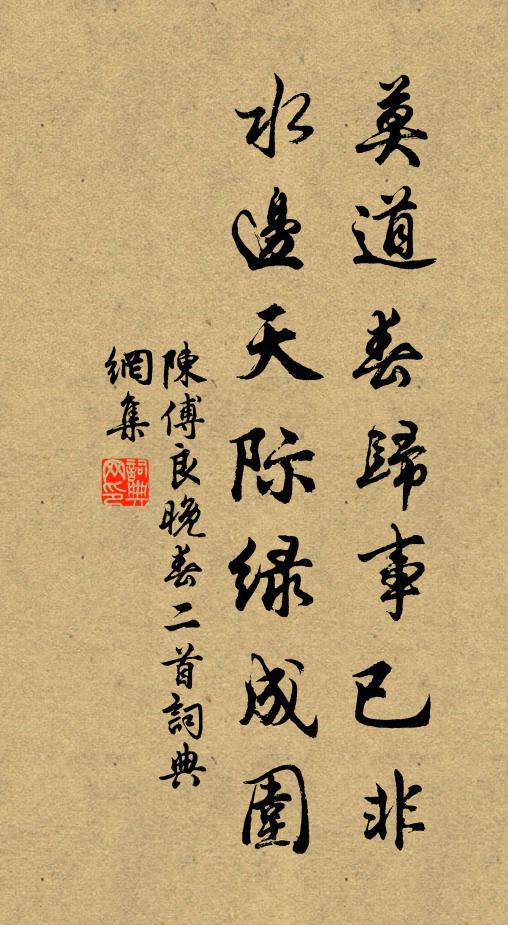 莫道春歸事已非
水邊天际绿成圍
陳傅良晚春二首詞典
網集
詞典
网印